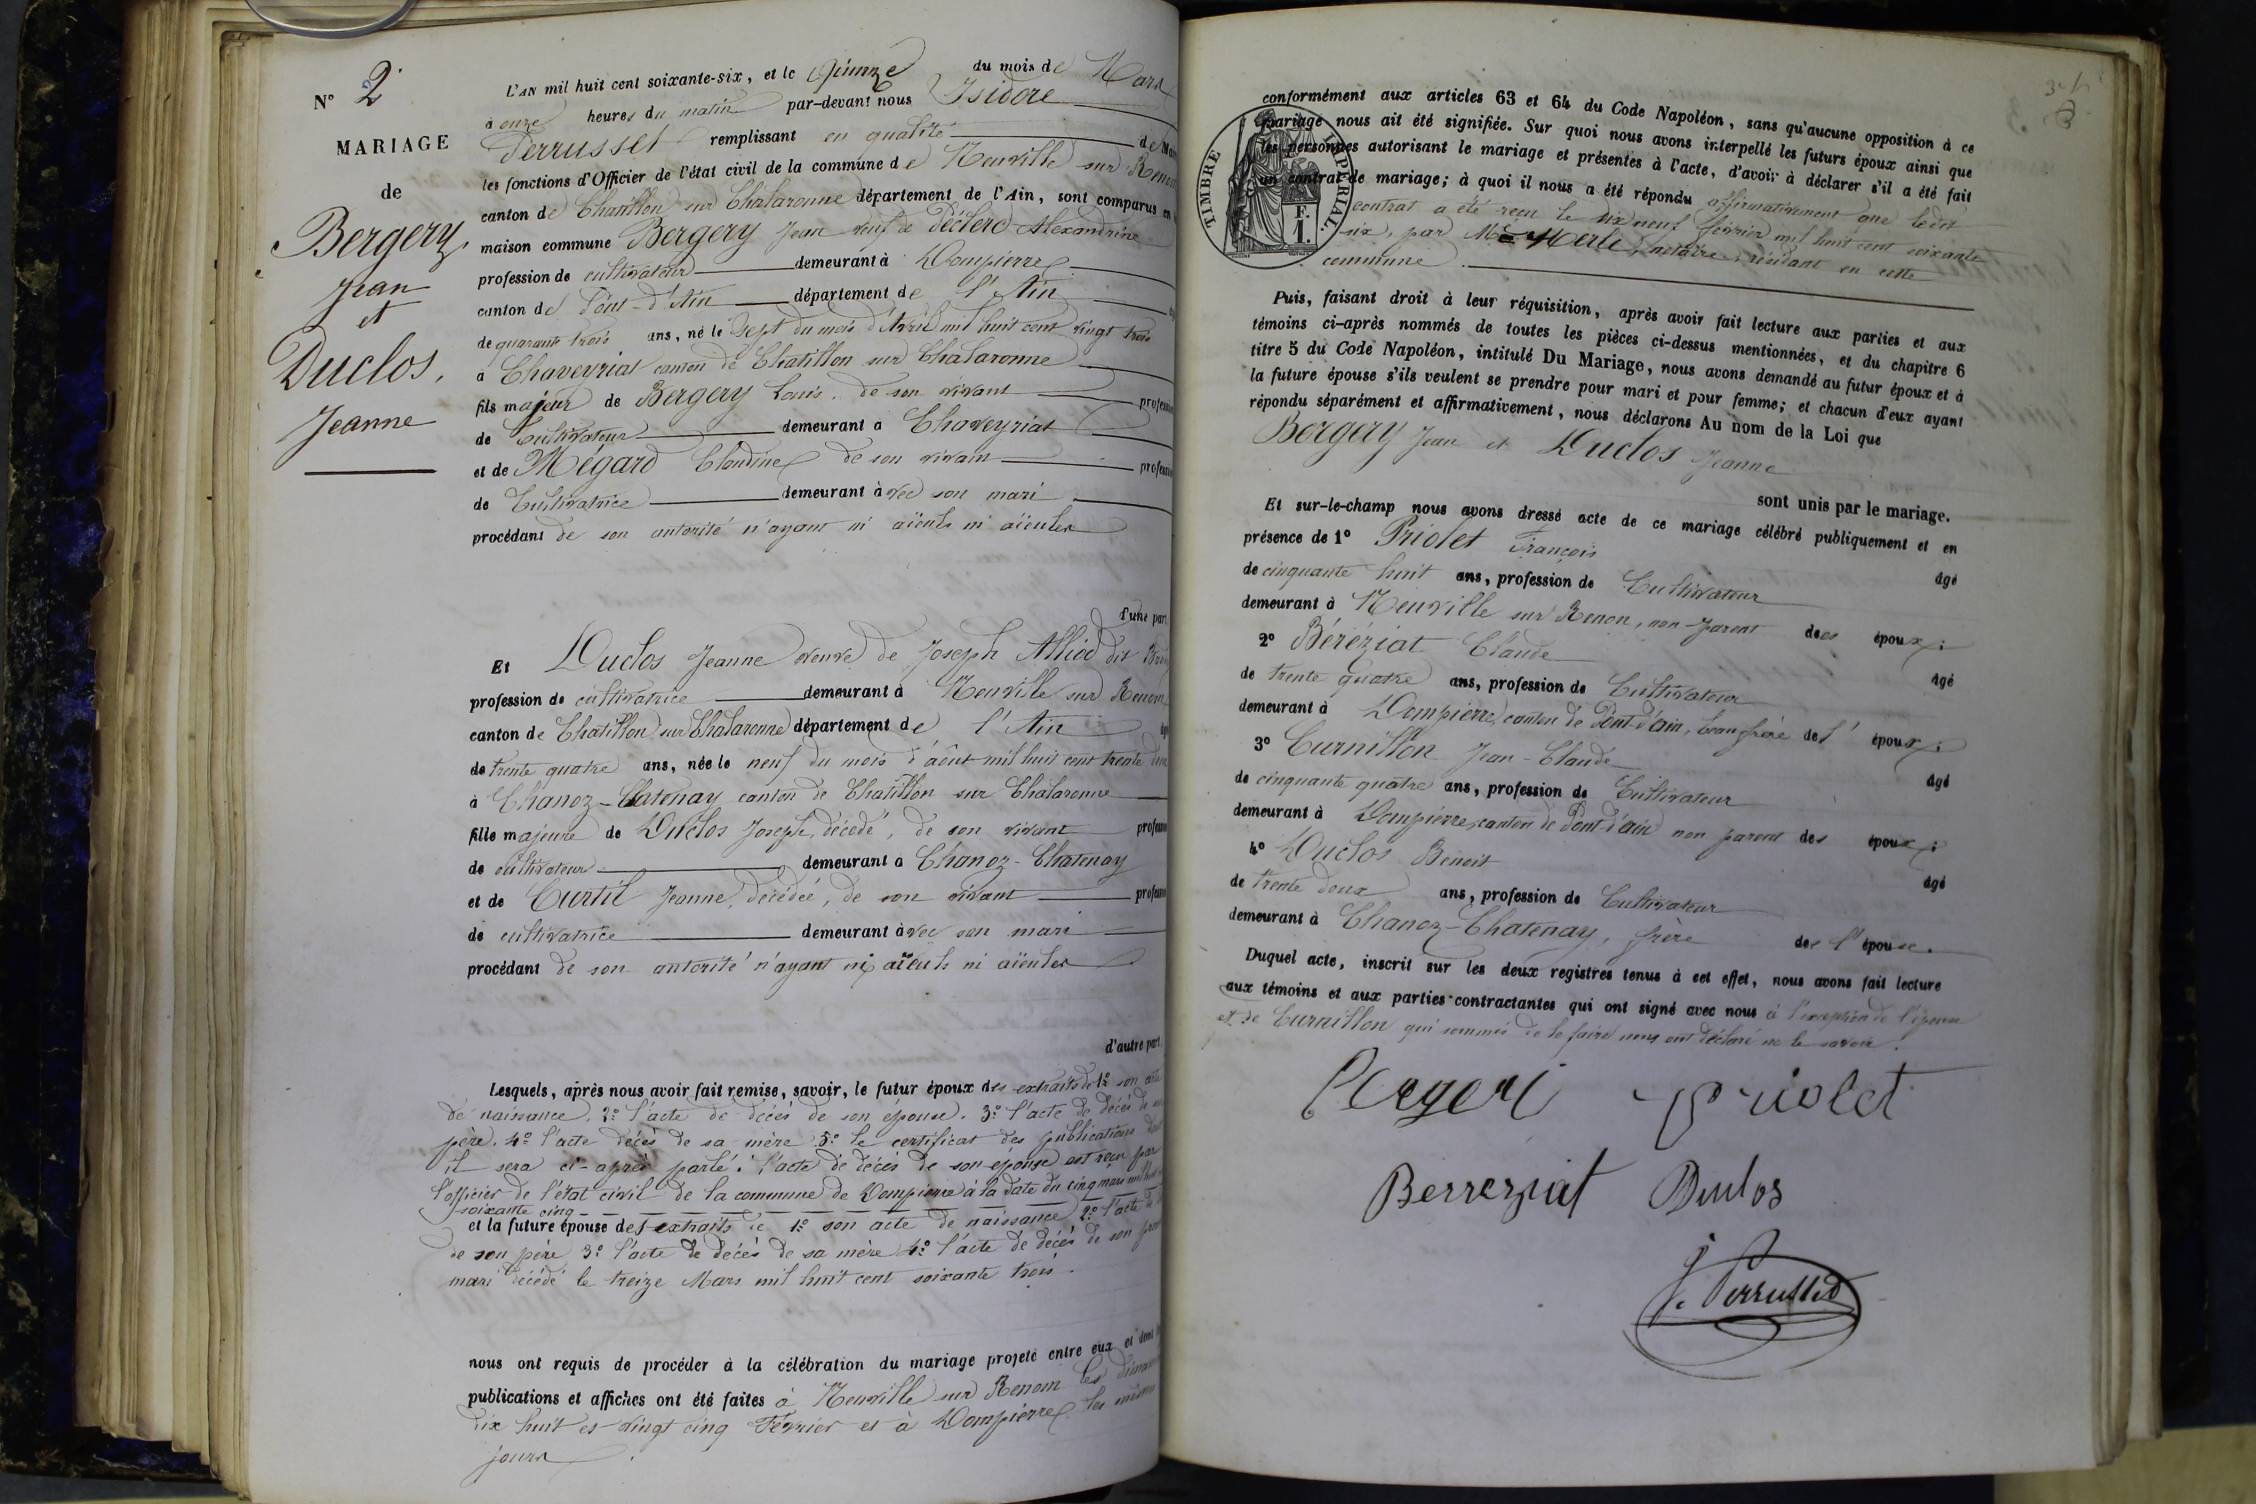 N° 2
MARIAGE
de
Bergery,
Jean
et
Duclos,
Jeanne
L'AN mil huit cent soixante-six, et le Quinze du mois de Mars
à onze heures du matin par-devant nous Isidore
Perrusset remplissant en qualité de
les fonctions d'Officier de l'état civil de la commune de Neuville sur Renon
canton de Chatillon sur Chalaronne département de l'Ain, sont comparus en
maison commune Bergery Jean veuf de Déclerd Alexandrine
profession de cultivateur demeurant à Dompierre
canton de Pont-d'Ain département de l'Ain
de quarante trois ans, né le Sept du mois d'Avril mil huit cent vingt trois
à Chaveyriat canton de Chatillon sur Chalaronne
fils majeur de Bergery Louis, de son vivant profession
de Cultivateur demeurant à Chaveyriat
et de Mégard Claudine de son vivant profession
de Cultivatrice demeurant àvec son mari
procédant de son autorité n'ayant ni aïeuls ni aïeules
d'une part
Et Duclos Jeanne veuve de Joseph Alliod dit
profession de cultivatrice demeurant à Neuville sur Renom
canton de Chatillon sur Chalaronne département de l'Ain
de trente quatre ans, née le neuf du mois d'août mil huit cent trente
à Chanoz-Catenay canton de Chatillon sur Chalaronne
fille majeure de Duclos Joseph, décédé, de son vivant profession
de cultivateur demeurant à Chanoz-Chatenay
et de Curtil Jeanne, décédée, de son vivant profession
de cultivatrice demeurant àvec son mari
procédant de son autorité n'ayant ni aïeuls ni aïeules
d'autre part.
Lesquels, après nous avoir fait remise, savoir, le futur époux des extraits de 1° son acte
de naissance. 2° l'acte de décès de son épouse. 3° l'acte de décès de son
père. 4° l'acte décès de sa mère 5° le certificat des publications dont
il sera ci-après parlé: l'acte de décès de son épouse est reçu par
l'officier de l'état civil de la commune de Dompierre à la date du cinq mars mil huit
soixante cinq
et la future épouse des extraits de 1° son acte de naissance 2° l'acte de
de son père 3° l'acte de décès de sa mère 4° l'acte de décès de son
mari décédé le treize Mars mil huit cent soixante trois.
nous ont requis de procéder à la célébration du mariage projeté entre eux et dont
publications et affiches ont été faites à Neuville sur Renom les
dix huit et vingt cinq Février et à Dompierre les mêmes
jours.
TIMBRE IMPÉRIAL.
F.
1.
conformément aux articles 63 et 64 du Code Napoléon, sans qu'aucune opposition à ce
mariage nous ait été signifiée. Sur quoi nous avons interpellé les futurs époux ainsi que
les personnes autorisant le mariage et présentes à l'acte, d'avoir à déclarer s'il a été fait
un contrat de mariage; à quoi il nous a été répondu affirmativement que ledit
contrat a été reçu le dix neuf février mil huit cent soixante
six, par Me Merle, notaire, résidant en cette
commune
Puis, faisant droit à leur réquisition, après avoir fait lecture aux parties et aux
témoins ci-après nommés de toutes les pièces ci-dessus mentionnées, et du chapitre 6
titre 5 du Code Napoléon, intitulé Du Mariage, nous avons demandé au futur époux et à
la future épouse s'ils veulent se prendre pour mari et pour femme; et chacun d'eux ayant
répondu séparément et affirmativement, nous déclarons Au nom de la Loi que
Bergery Jean et Duclos Jeanne
sont unis par le mariage.
Et sur-le-champ nous avons dressé acte de ce mariage célébré publiquement et en
présence de 1° Priolet François âgé
de cinquante huit ans, profession de Cultivateur
demeurant à Neuville sur Renon, non parent des époux;
2° Béréziat Claude âgé
de trente quatre ans, profession de Cultivateur
demeurant à Dompierre, canton de Pont d'ain, beau frère de l'époux;
3° Curnillon Jean-Claude âgé
de cinquante quatre ans, profession de Cultivateur
demeurant à Dompierre, canton de Pont-d'ain non parent des époux;
4° Duclos Benoit âgé
de trente deux ans, profession de Cultivateur
demeurant à Chanoz-Chatenay, frère de l'épouse.
Duquel acte, inscrit sur les deux registres tenus à cet effet, nous avons fait lecture
aux témoins et aux parties contractantes qui ont signé avec nous à l'exception de l'épouse
et de Curnillon qui sommés de le faire nous ont déclaré ne le savoir.
Bergeri Priolet
Berreziat Duclos
J. Perrusset